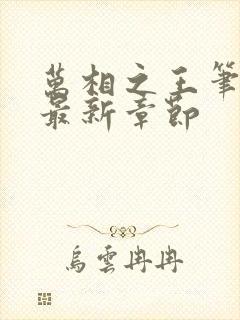 萬相之王筆
最新章節
烏雲冉冉